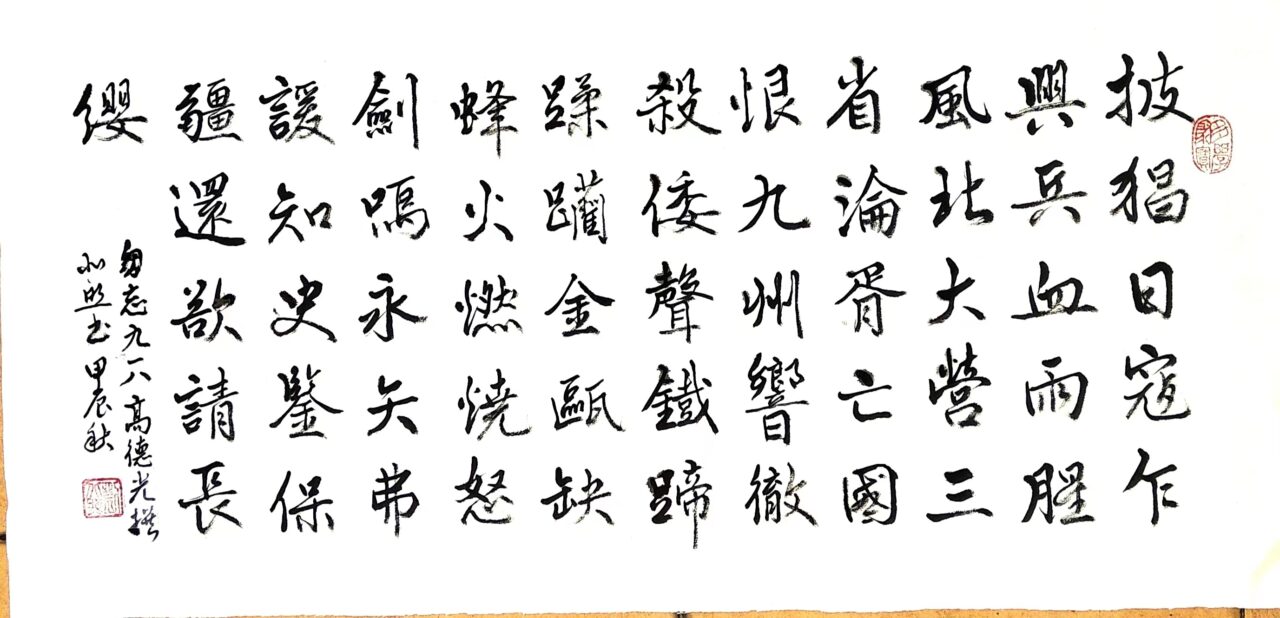 披猖日寇乍
興兵血雨腥
風北大營三
省淪胥亡國
恨九州響徹
殺倭聲鐵蹄
蹂躪金甌缺
蜂火燃燒怒
劍鳴永矢弗
諼知史鑒保
疆還欲請長
纓
勿忘九一八高德光撰
書甲辰秋